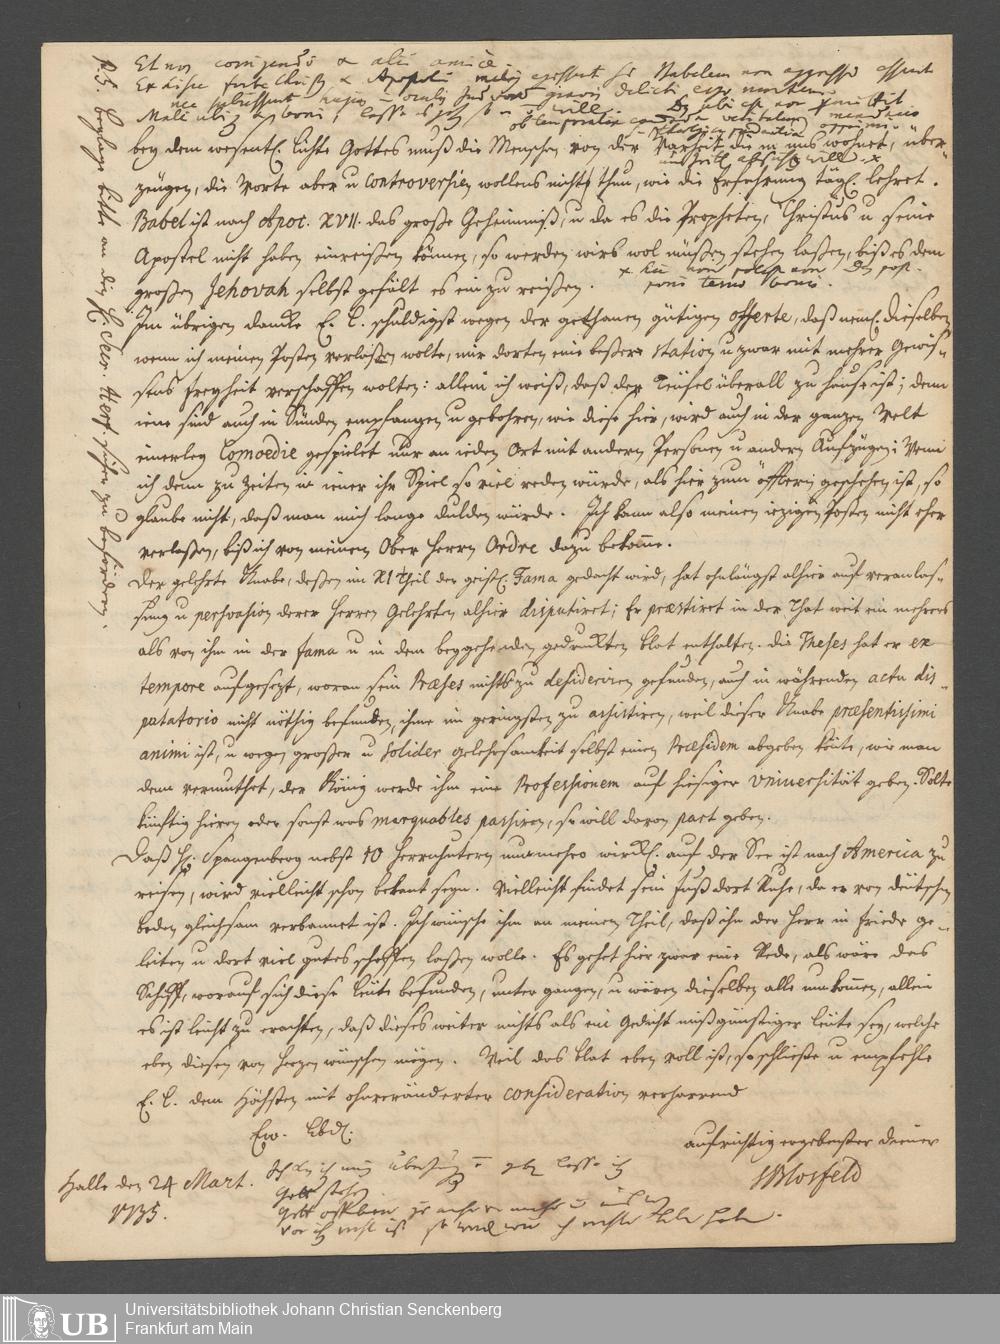 Et nos corrigendo & alii amice
bey dem wesentl. Lichte Gottes muß die Menschen von der Warheit die in uns wohnet, über-
zeugen, die Worte aber u controversien wollens nicht thun, wie die Erfahrung tägl. lehret.
Babel ist nach Apoc. XVII. das große Geheimniß, u da es die Propheten, Christus u seine
Apostel nicht haben einreißen können, so werden wirs wol müßen stehen laßen, biß es dem
großen Jehovah selbst gefält es ein zu reißen.
Im übrigen dancke E. L. schuldigst wegen der gethanen gütigen offerte, daß neml. dieselben
wenn ich meinen Posten verlaßen wolte, mir dorten eine beßere station u zwar mit mehrer Gewis-
sens freyheit verschaffen wolten: allein ich weiß, daß der Teüfel überall zu hause ist; denn
jene sind auch in Sünden empfangen u gebohren, wie diese hier, wird auch in der ganzen Welt
einerley Comoedie gespielet nur an ieden Ort mit andern Personen u andern Aufzügen; Wenn
ich denn zu Zeiten in jener ihr Spiel so viel reden würde, als hier zum öfftern geschehen ist, so
glaube nicht, daß man mich lange dulden würde. Ich kann also meinen iezigen Posten nicht eher
verlaßen, biß ich von meinem Ober Herrn Ordre dazu bekomme.
Der gelehrte Knabe, deßen im XI Theil der geistl. Fama gedacht wird, hat ohnlängst alhier auf veranlas-
sung u persvasion derer Herren Gelehrten alhier disputiret; Er præstiret in der That weit ein mehrers
als von ihm in der fama u in dem beygehenden gedruckten blat enthalten. die Theses hat er ex
tempore aufgesezt, woran sein Præses nichts zu desideriren gefunden, auch in währenden actu dis-
putatorio nicht nöthig befunden, ihme im geringsten zu assistiren, weil dieser Knabe præsentissimi
animi ist, u wegen großer u solider gelehrsamkeit selbst einen Præsidem abgeben könte, wie man
denn vermuthet, der König werde ihm eine Professionem auf hiesiger Universität geben. Solte
künftig hievon oder sonst was marquables passiren, so will davon part geben.
Daß H. Spangenberg nebst 10 Herrnhutern nunmehro würkl. auf der See ist nach America zu
reisen, wird vielleicht schon bekant seyn. Vielleicht findet sein fuß dort Ruhe, da er von deütschen
boden gleichsam verbannet ist. Ich wünsche ihm an meinen Theil, daß ihn der Herr in friede ge-
leiten u dort viel gutes schaffen laßen wolle. Es gehet hier zwar eine Rede, als wäre das
Schiff, worauf sich diese leüte befunden, unter gangen, u wären dieselben alle umkommen, allein
es ist leicht zu erachten, daß dieses weiter nichts als ein Gedicht mißgünstiger leüte sey, welche
eben diesen von Herzen wünschen mögen. Weil das blat eben voll ist, so schließe u empfehle
E. L. dem Höchsten mit ohnveränderter consideration verharrend
Ew. Lbd.
aufrichtig ergebenster diener
Halle den 24 Mart.
1735.
P.S. beylage bitte an den H. Secr. sicher zu befördern.
Universitätsbibliothek Johann Christian Senckenberg
Frankfurt am Main
UB